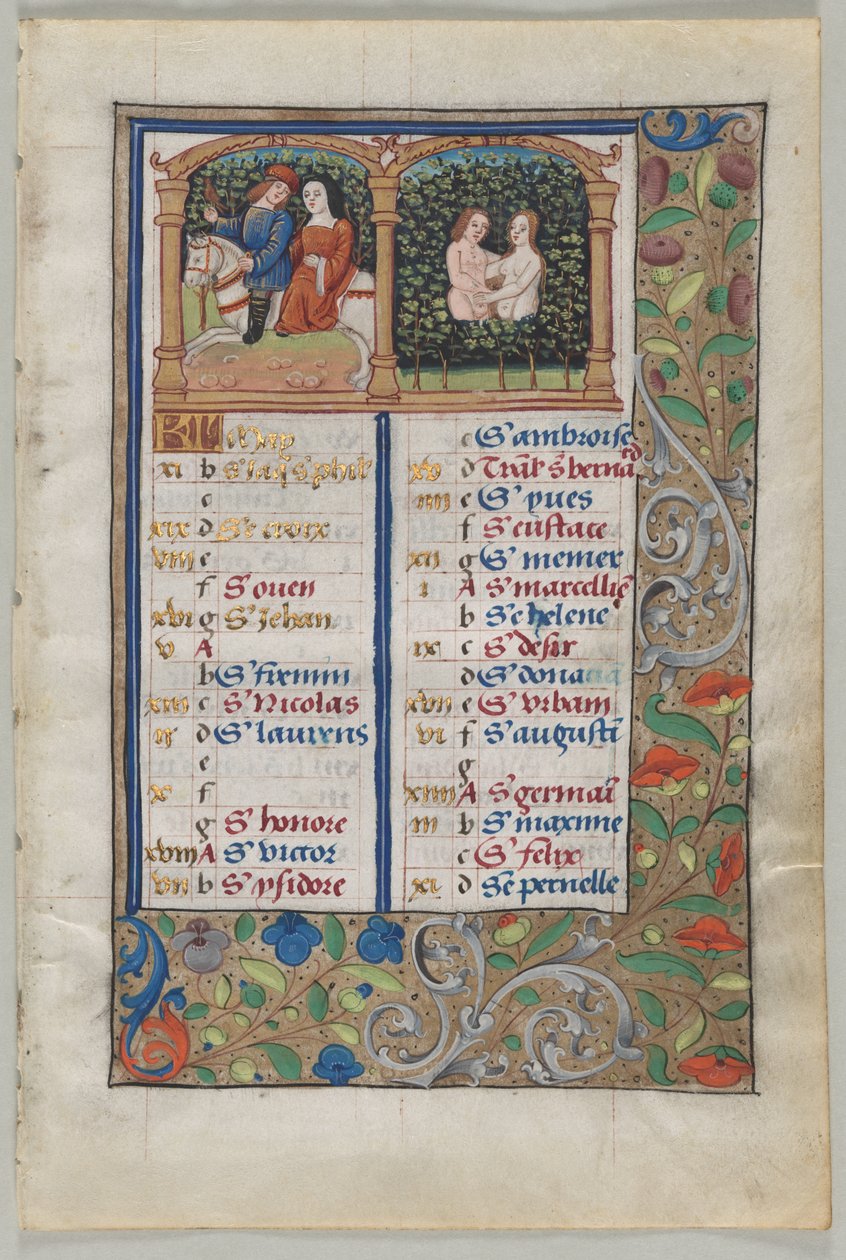 KL May
xi b S' Jaq' S' phil'
c
xix d Se croix
viii e
f S' ouen
xvi g S' Jehan
v A
b S' firmin
xiii c S' Nicolas
ii d S' laurens
e
x f
g S' honore
xviii A S' victor
vii b S' ysidore
c S' ambroise
xv d Trãsl S' bernard
iiii e S' yues
f S' eustace
xii g S' memer
i A S' marcelliẽ
b Se helene
ix c S' desir
d S' donaciã
xvii e S' Vrbain
vi f S' augusti
g
xiiii A S' germaĩ
iii b S' maxime
c S' felix
xi d Se pernelle